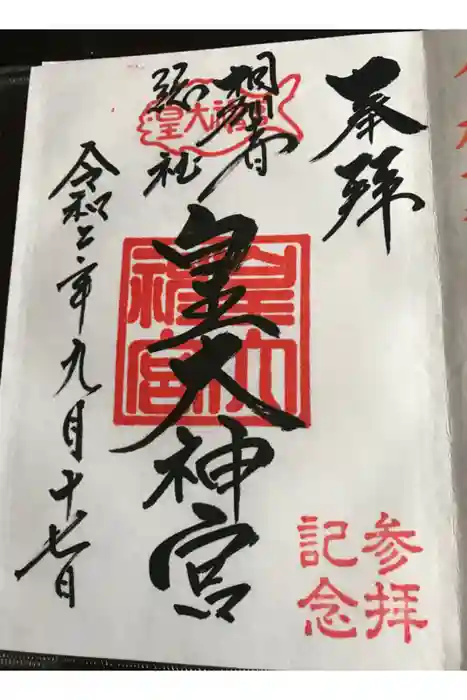 奉拝
総社
皇大神宮
皇大
神宮
令和二年九月十七日
参拝
記念